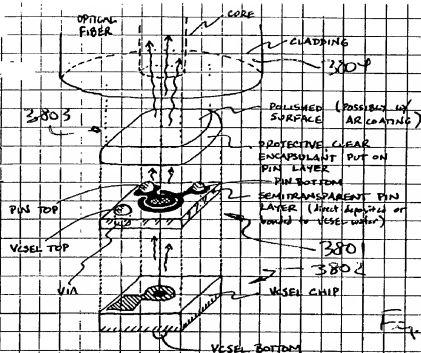 OPTICAL
FIBER
CORE
CLADDING
3804
3803
POLISHED (POSSIBLY W/
SURFACE AR COATING)
PROTECTIVE CLEAR
ENCAPSULANT PUT ON
PIN LAYER
PIN BOTTOM
SEMITRANSPARENT PIN
LAYER (direct deposited or
bound to VCSEL wafer)
PIN TOP
VCSEL TOP
3801
3802
VIA
VCSEL CHIP
VCSEL BOTTOM